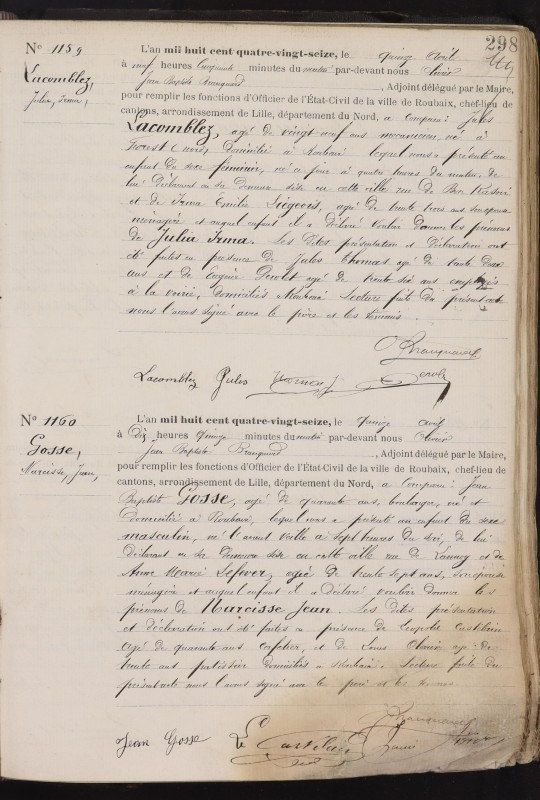 298
Nº 1159
Lacomblez,
Julia, Irma,
L'an mil huit cent quatre-vingt-seize, le quinze avril
à neuf heures cinquante minutes du matin par-devant nous Olivier
Jean Baptiste Branquart, Adjoint délégué par le Maire,
pour remplir les fonctions d'Officier de l'État-Civil de la ville de Roubaix, chef-lieu de
cantons, arrondissement de Lille, département du Nord, a comparu: Jules
Lacomblez, agé de vingt neuf ans menuisier, né à
Forest (Nord), domicilié à Roubaix lequel nous a présenté un
enfant du sexe féminin, née ce jour à quatre heures du matin, de
lui déclarant en sa demeure sise en cette ville rue de
et de Irma Emilie Liégeois, agée de trente trois ans, son épouse
ménagère et auquel enfant il a déclaré vouloir donner les prénoms
de Julia Irma. Les dites présentation et déclaration ont
été faites en présence de Jules Thomas agé de trente deux
ans et de Eugène Derolet agé de trente six ans employés
à la voirie, domiciliés à Roubaix. Lecture faite du présent acte
nous l'avons signé avec le père et les témoins.
Lacomblez Jules
Nº 1160
Gosse,
Narcisse, Jean,
L'an mil huit cent quatre-vingt-seize, le quinze avril
à dix heures quinze minutes du matin par-devant nous Olivier
Jean Baptiste Branquart, Adjoint délégué par le Maire,
pour remplir les fonctions d'Officier de l'État-Civil de la ville de Roubaix, chef-lieu de
cantons, arrondissement de Lille, département du Nord, a comparu: Jean
Baptiste Gosse, agé de quarante ans, boulanger, né et
domicilié à Roubaix, lequel nous a présenté un enfant du sexe
masculin, né l'avant veille à sept heures du soir, de lui
déclarant en sa demeure sise en cette ville rue de Lannoy et de
Anne Marie Lefever, agée de trente sept ans, son épouse
ménagère et auquel enfant il a déclaré vouloir donner les
prénoms de Narcisse Jean. Les dites présentation
et déclaration ont été faites en présence de Léopold Castelain
agé de quarante ans cafetier, et de Louis Olivier agé de
trente ans patissier domiciliés à Roubaix. Lecture faite du
présent acte nous l'avons signé avec le père et les témoins
Jean Gosse